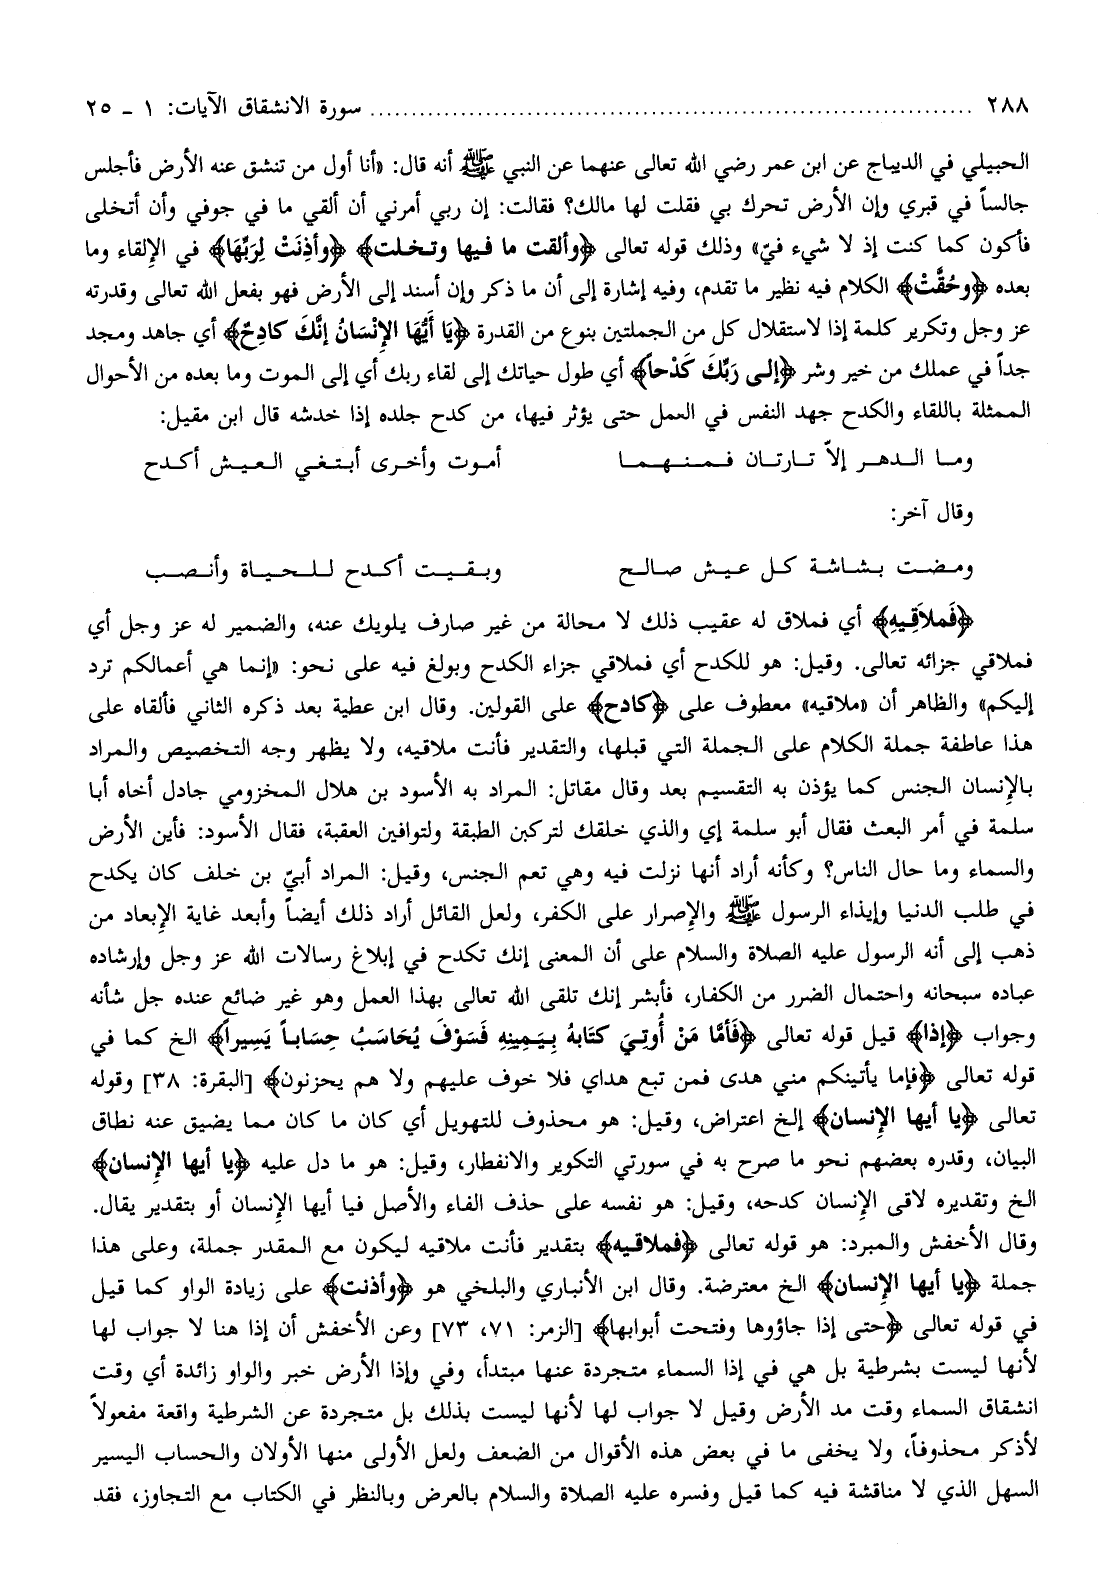 ٢٨٨ ........ سورة الانشقاق الآيات: ١ ـ ٢٥
الحبيلي في الديباج عن ابن عمر رضي الله تعالى عنهما عن النبي ﷺ أنه قال: «أنا أول من تنشق عنه الأرض فأجلس
جالساً في قبري وإن الأرض تحرك بي فقلت لها مالك؟ فقالت: إن ربي أمرني أن ألقي ما في جوفي وأن أتخلى
فأكون كما كنت إذ لا شيء فيّ» وذلك قوله تعالى ﴿وألقت ما فيها وتخلت﴾ ﴿وأَذِنَتْ لِرَبِّهَا﴾ في الإلقاء وما
بعده ﴿وحُقَّتْ﴾ الكلام فيه نظير ما تقدم، وفيه إشارة إلى أن ما ذكر وإن أسند إلى الأرض فهو بفعل الله تعالى وقدرته
عز وجل وتكرير كلمة إذا لاستقلال كل من الجملتين بنوع من القدرة ﴿يَا أَيُّهَا الإنْسَانُ إنَّكَ كادِحٌ﴾ أي جاهد ومجد
جداً في عملك من خير وشر ﴿إلى رَبِّكَ كَدْحاً﴾ أي طول حياتك إلى لقاء ربك أي إلى الموت وما بعده من الأحوال
الممثلة باللقاء والكدح جهد النفس في العمل حتى يؤثر فيها، من كدح جلده إذا خدشه قال ابن مقيل:
وما الدهر إلاّ تارتان فمنهما أموت وأخرى أبتغي العيش أكدح
وقال آخر:
ومضت بشاشة كل عيش صالح وبقيت أكدح للحياة وأنصب
﴿فَملاَقِيهِ﴾ أي فملاق له عقيب ذلك لا محالة من غير صارف يلويك عنه، والضمير له عز وجل أي
فملاقي جزائه تعالى. وقيل: هو للكدح أي فملاقي جزاء الكدح وبولغ فيه على نحو: «إنما هي أعمالكم ترد
إليكم» والظاهر أن «ملاقيه» معطوف على ﴿كادح﴾ على القولين. وقال ابن عطية بعد ذكره الثاني فألقاه على
هذا عاطفة جملة الكلام على الجملة التي قبلها، والتقدير فأنت ملاقيه، ولا يظهر وجه التخصيص والمراد
بالإنسان الجنس كما يؤذن به التقسيم بعد وقال مقاتل: المراد به الأسود بن هلال المخزومي جادل أخاه أبا
سلمة في أمر البعث فقال أبو سلمة إي والذي خلقك لتركبن الطبقة ولتوافين العقبة، فقال الأسود: فأين الأرض
والسماء وما حال الناس؟ وكأنه أراد أنها نزلت فيه وهي تعم الجنس، وقيل: المراد أبيّ بن خلف كان يكدح
في طلب الدنيا وإيذاء الرسول ﷺ والإصرار على الكفر، ولعل القائل أراد ذلك أيضاً وأبعد غاية الإبعاد من
ذهب إلى أنه الرسول عليه الصلاة والسلام على أن المعنى إنك تكدح في إبلاغ رسالات الله عز وجل وإرشاده
عباده سبحانه واحتمال الضرر من الكفار، فأبشر إنك تلقى الله تعالى بهذا العمل وهو غير ضائع عنده جل شأنه
وجواب ﴿إذا﴾ قيل قوله تعالى ﴿فَأمَّا مَنْ أُوتِيَ كتَابهُ بِيَمِينِهِ فَسَوْفَ يُحَاسَبُ حِسَاباً يَسِيراً﴾ الخ كما في
قوله تعالى ﴿فإما يأتينكم مني هدى فمن تبع هداي فلا خوف عليهم ولا هم يحزنون﴾ [البقرة: ٣٨] وقوله
تعالى ﴿يا أيها الإنسان﴾ إلخ اعتراض، وقيل: هو محذوف للتهويل أي كان ما كان مما يضيق عنه نطاق
البيان، وقدره بعضهم نحو ما صرح به في سورتي التكوير والانفطار، وقيل: هو ما دل عليه ﴿يا أيها الإنسان﴾
الخ وتقديره لاقى الإنسان كدحه، وقيل: هو نفسه على حذف الفاء والأصل فيا أيها الإنسان أو بتقدير يقال.
وقال الأخفش والمبرد: هو قوله تعالى ﴿فملاقيه﴾ بتقدير فأنت ملاقيه ليكون مع المقدر جملة، وعلى هذا
جملة ﴿يا أيها الإنسان﴾ الخ معترضة. وقال ابن الأنباري والبلخي هو ﴿وأذنت﴾ على زيادة الواو كما قيل
في قوله تعالى ﴿حتى إذا جاؤوها وفتحت أبوابها﴾ [الزمر: ٧١، ٧٣] وعن الأخفش أن إذا هنا لا جواب لها
لأنها ليست بشرطية بل هي في إذا السماء متجردة عنها مبتدأ، وفي وإذا الأرض خبر والواو زائدة أي وقت
انشقاق السماء وقت مد الأرض وقيل لا جواب لها لأنها ليست بذلك بل متجردة عن الشرطية واقعة مفعولاً
لأذكر محذوفاً، ولا يخفى ما في بعض هذه الأقوال من الضعف ولعل الأولى منها الأولان والحساب اليسير
السهل الذي لا مناقشة فيه كما قيل وفسره عليه الصلاة والسلام بالعرض وبالنظر في الكتاب مع التجاوز، فقد